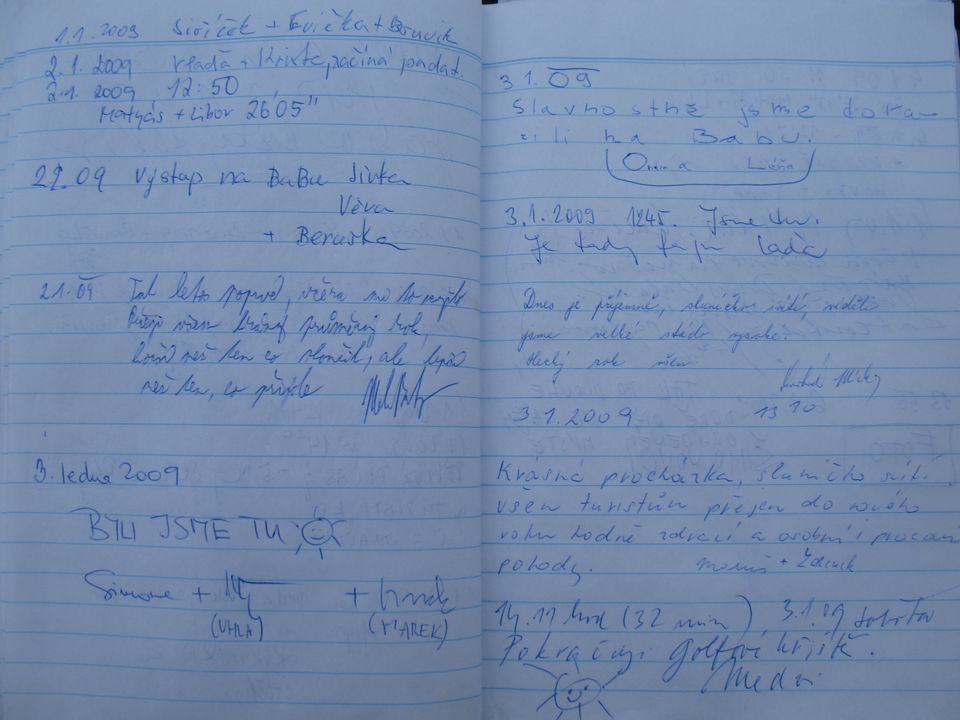 1.1.2009 Siříček + Evička + Bouvik
2.1.2009 Vláďa + začíná padat.
2.1.2009 12:50
Matyáš + Libor 26'05"
2.1.09 Výstup na BaBu Sivka
Věva
+ Beruška
2.1.09 Tak letos poprvé, včera
všem krásný průměrný rok,
horší než ten co skončil, ale lepší
než ten, co přijde
3. ledna 2009
BYLI JSME TU
Simone +
(UHLA)
+
(MAREK)
3 1. 09
Slavnostně jsme dora-
zili na Babu.
3.1.2009 1245. Jsme tu.
Je tady fajn Laďa
Dnes je příjemně, sluníčko svítí, viděli
jsme velké stádo
Hezký rok všem.
3.1.2009 13 10
Krásná procházka, sluníčko svítí.
všem turistům přejem do nového
roku hodně zdraví a osobní i pracovní
pohody. + Zdeněk
14.11 hod (32 min) 3.1.09 sobota
Pokračuji golfové hřiště.